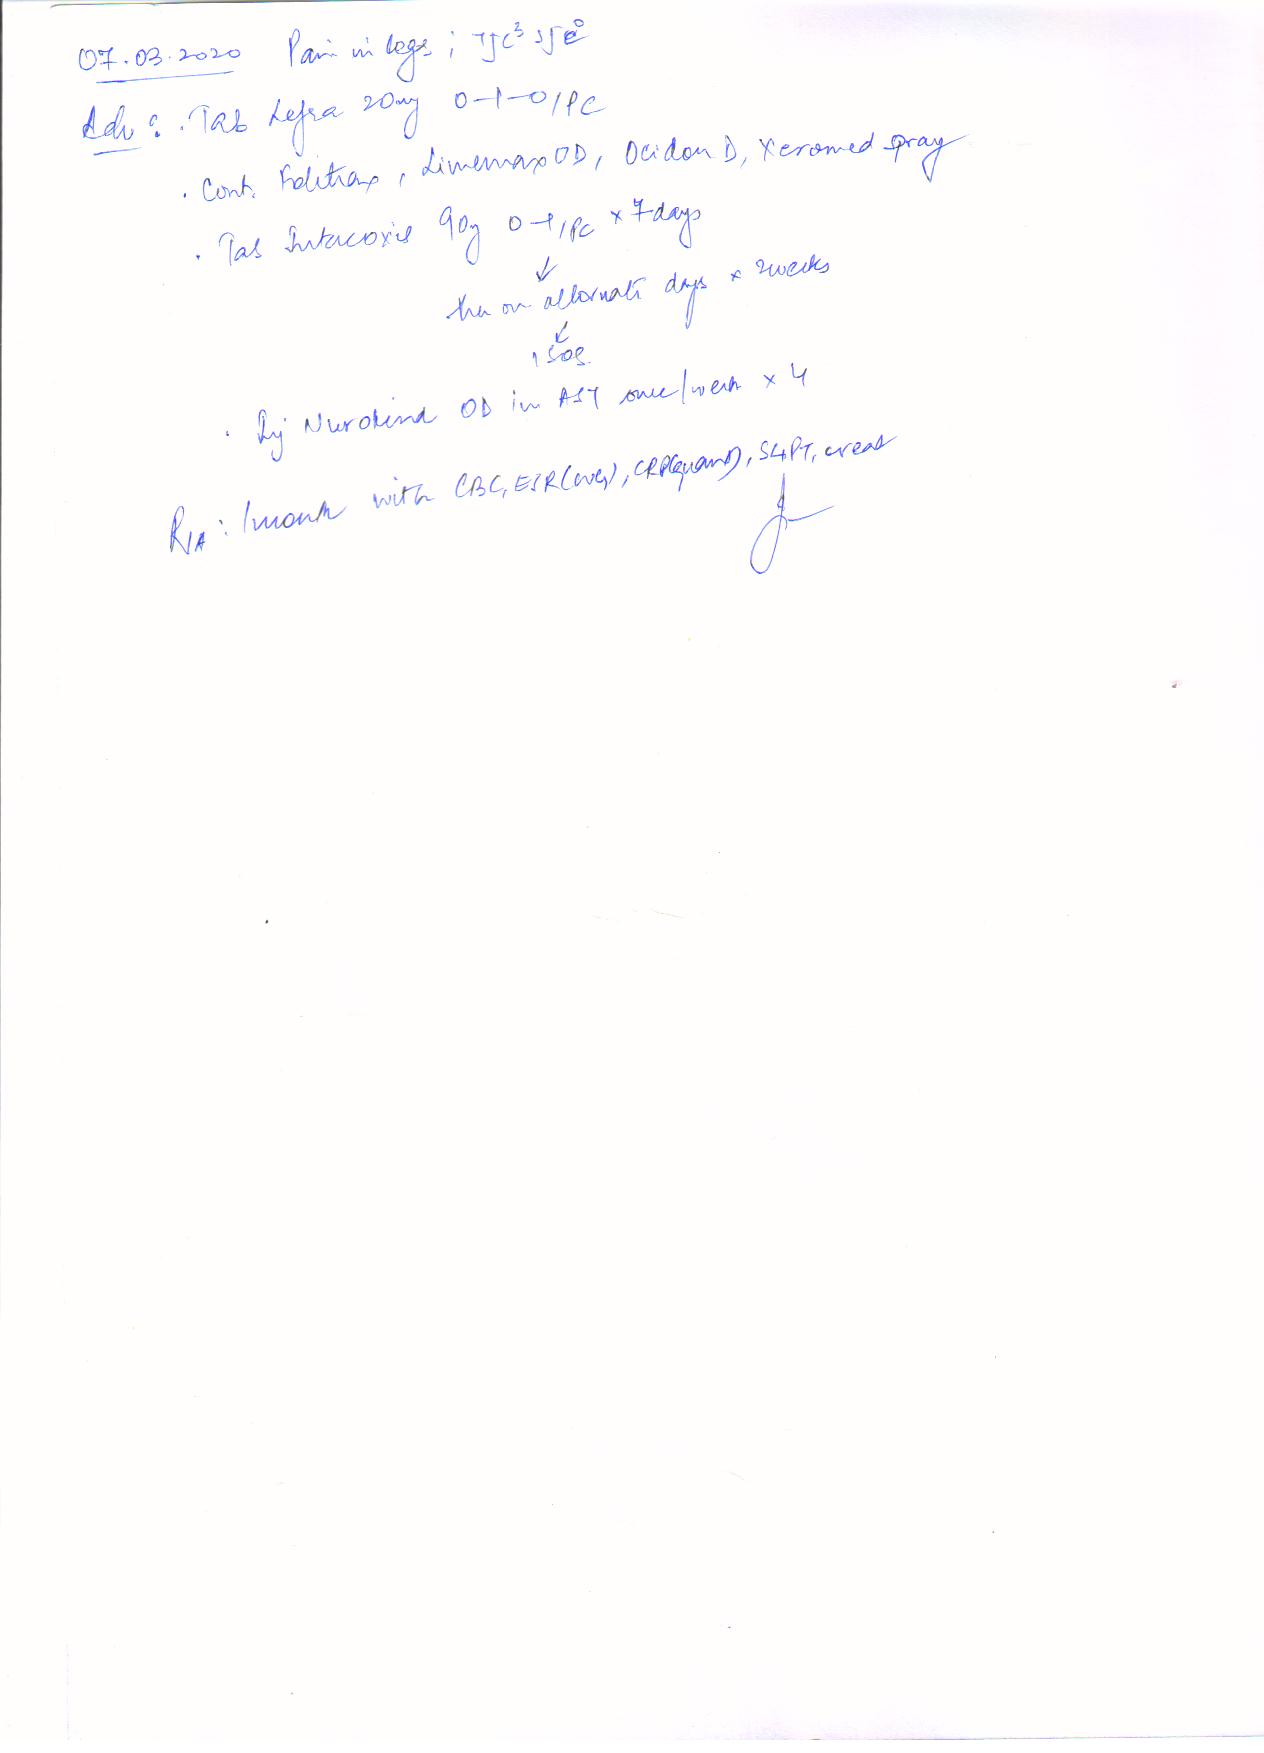 07.03.2020 Pain in legs ; TJC3 SJC0
Adv : . Tab Lefra 20mg 0-1-0/PC
. Cont. Folitrax , Limemax OD, Ocidon D, Xeromed spray
. Tab Intacoxia 90mg 0-1/PC x 7 days
↓
then on alternate days x 2 weeks
↓
SOS.
. Inj Nurokind OD im AST once/week x 4
R/A : 1 month with CBC, ESR(), CRP(quant), SGPT, creat